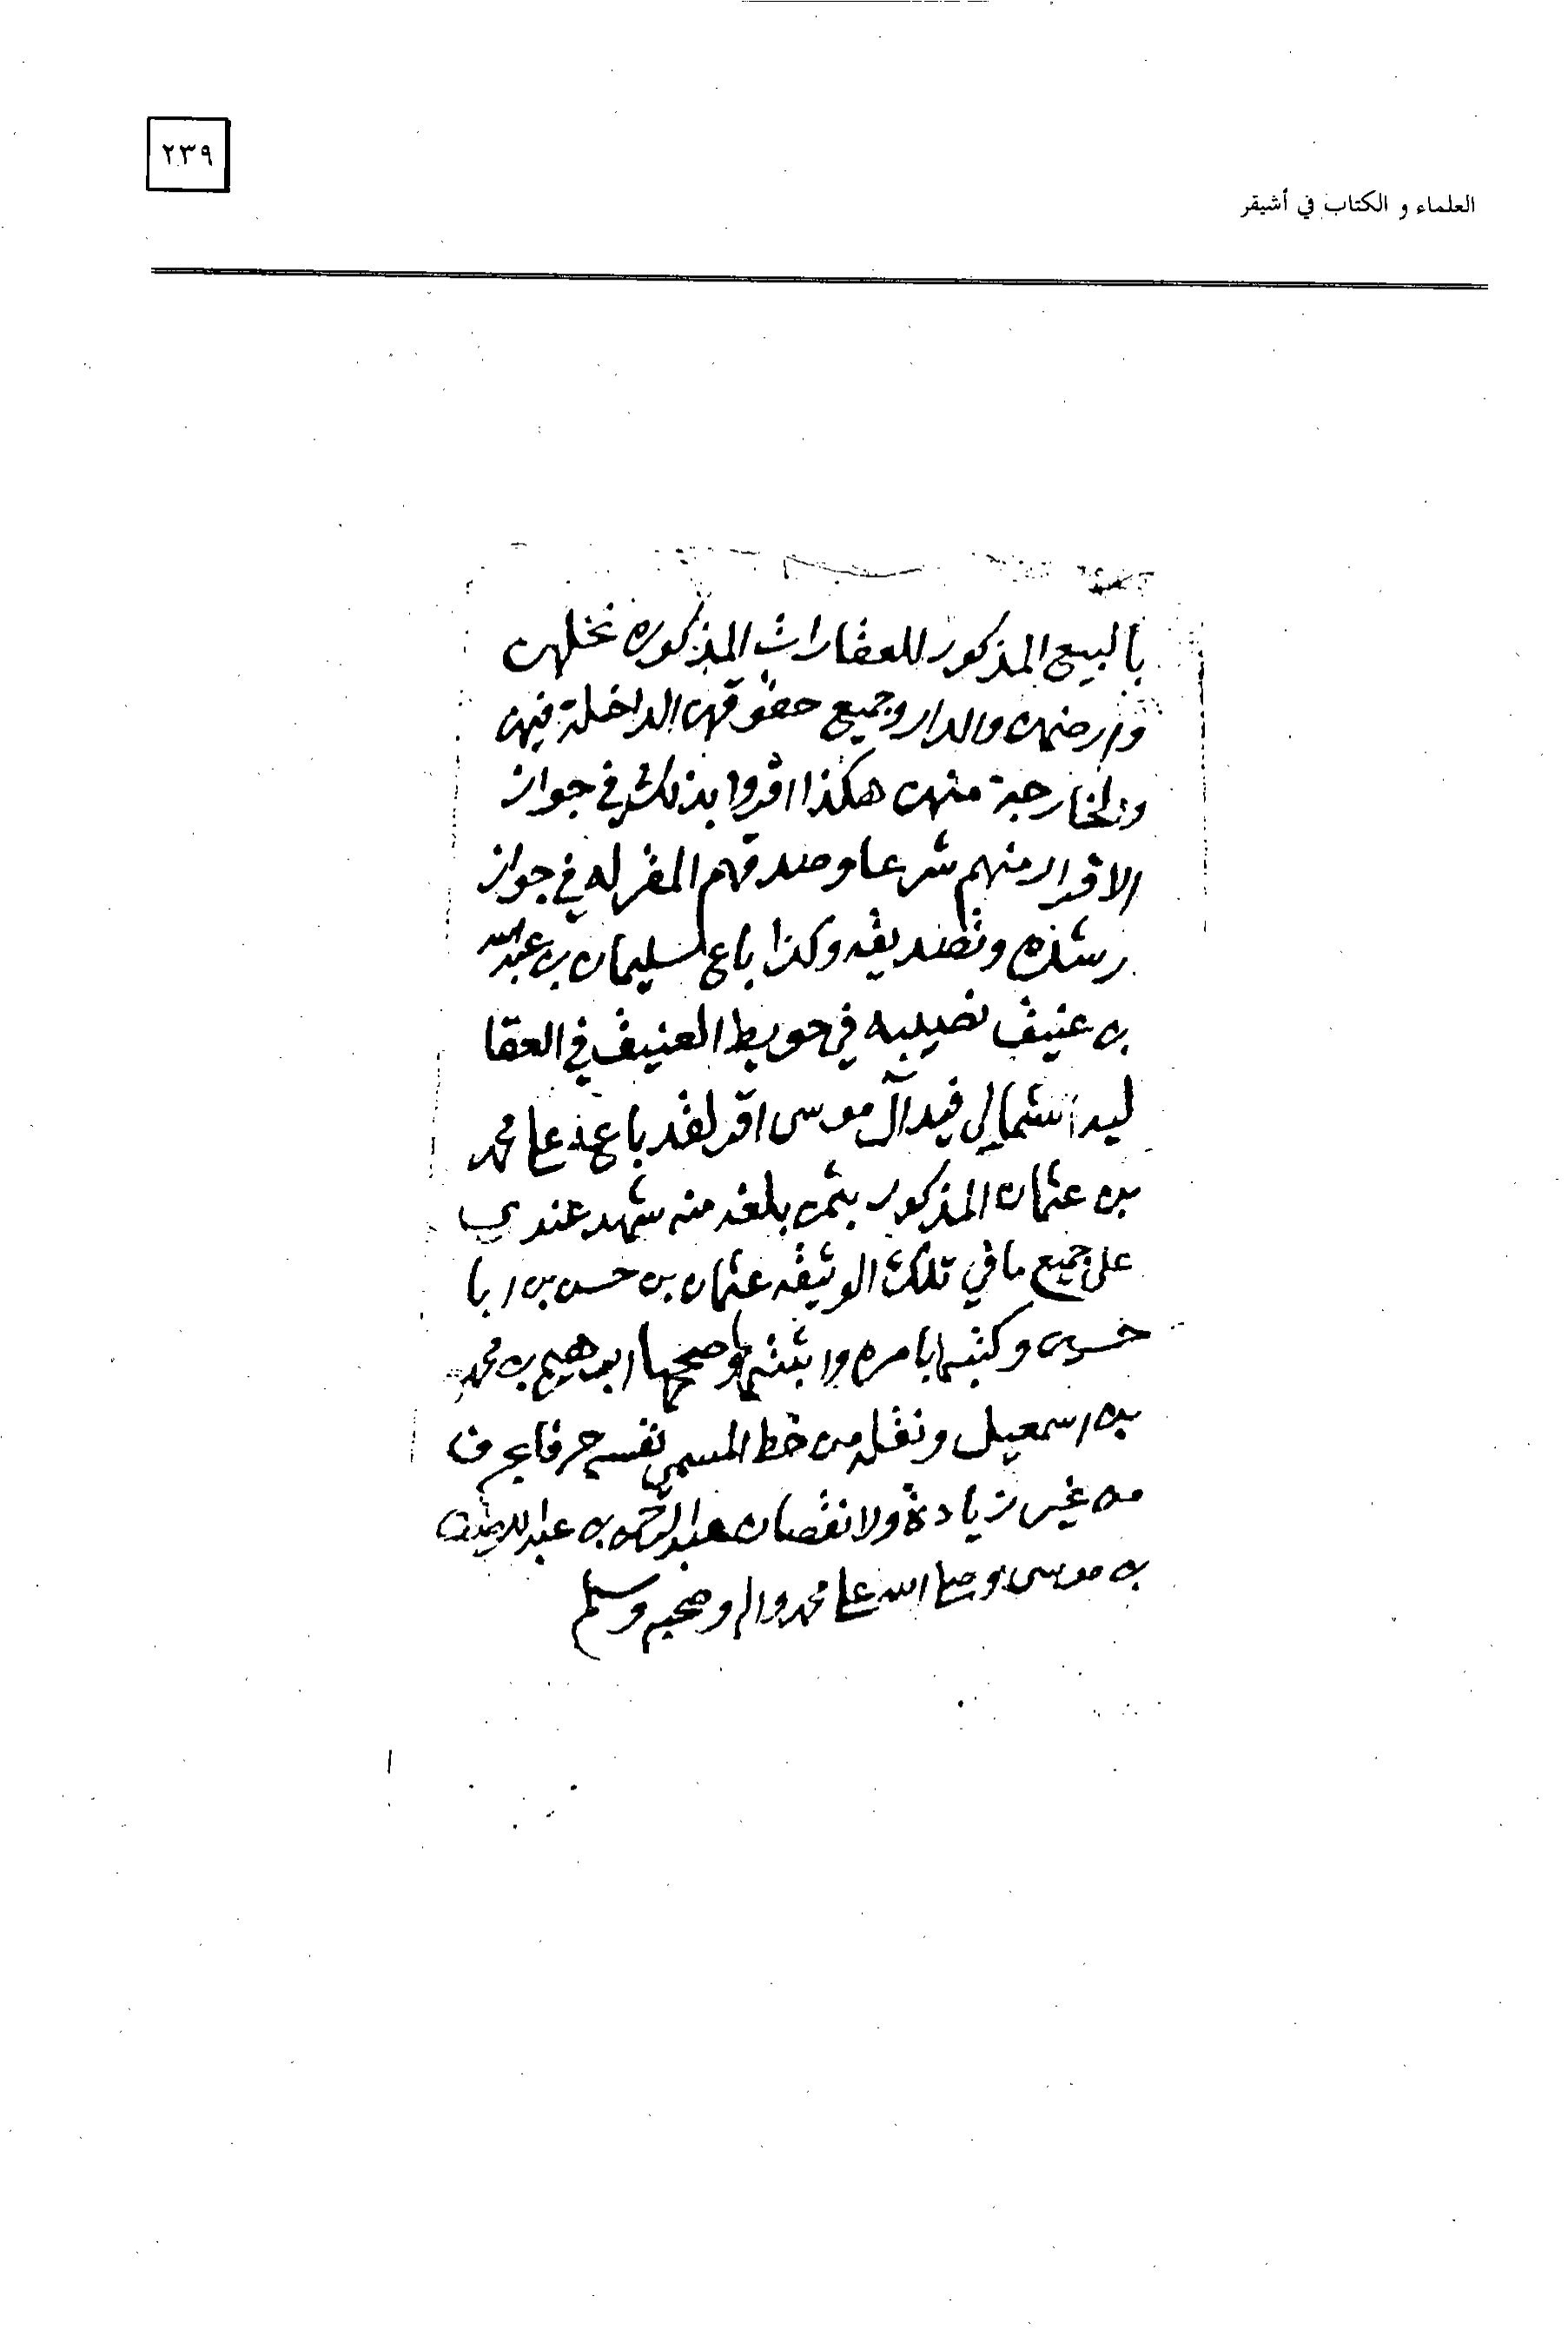 ٢٣٩
العلماء و الكتاب في أشيقر
بالبيع المذكور للعقارات المذكوره نخلهن
وارضهن والدار وجميع حقوقهن الداخلة فيهن
والخارجة منهن هكذا اقروا بذلك في جواز
الاقرار منهم شرعا وصدقهم المقر له في جواز
رشده وتصديقه وكذا باع سليمان بن عبدالله
بن عنيق نصيبه في حويط العنيق في العقا
ليد الشمالي فيد آل موسى اقر لقد باعه على محمد
بن عثمان المذكور بثمن بلغه منه شهد عندي
على جميع ما في تلك الوثيقه عثمان بن حسن بن ابا
حسين وكتبها بامره واثبتها وصححها ابرهيم بن محمد
بن اسمعيل ونقله من خط المسمى نفسه حرفا بحرف
من غير زيادة ولا نقصان عبدالرحمن بن عبداللطيف
بن موسى وصلى الله على محمد واله وصحبه وسلم